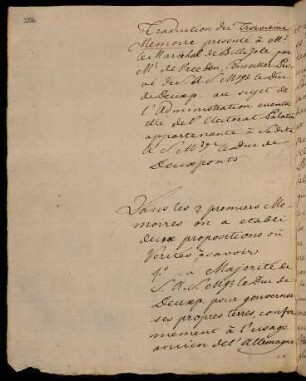 Traduction du Troisieme
Memoire presenté à Mr.
le Marechal de Belleisle par
Mr. de Conseiller
de S. A. S. Mgr le Duc
de Deuxp. au sujet de
l'Administration eventu
elle de l'Electorat Palatin
appartenante à Sadite
A. S. Mgr. le Duc de
Deuxponts
Dans les 2 premiers Me
moires on a etabli
deux propositions ou
Verités à savoir
1o. La Majorité de
S. A. S. Mgr le Duc de
Deuxp. pour gouverner
ses propres terres, confor
mement à l'usage
ancien de l'Allemagne